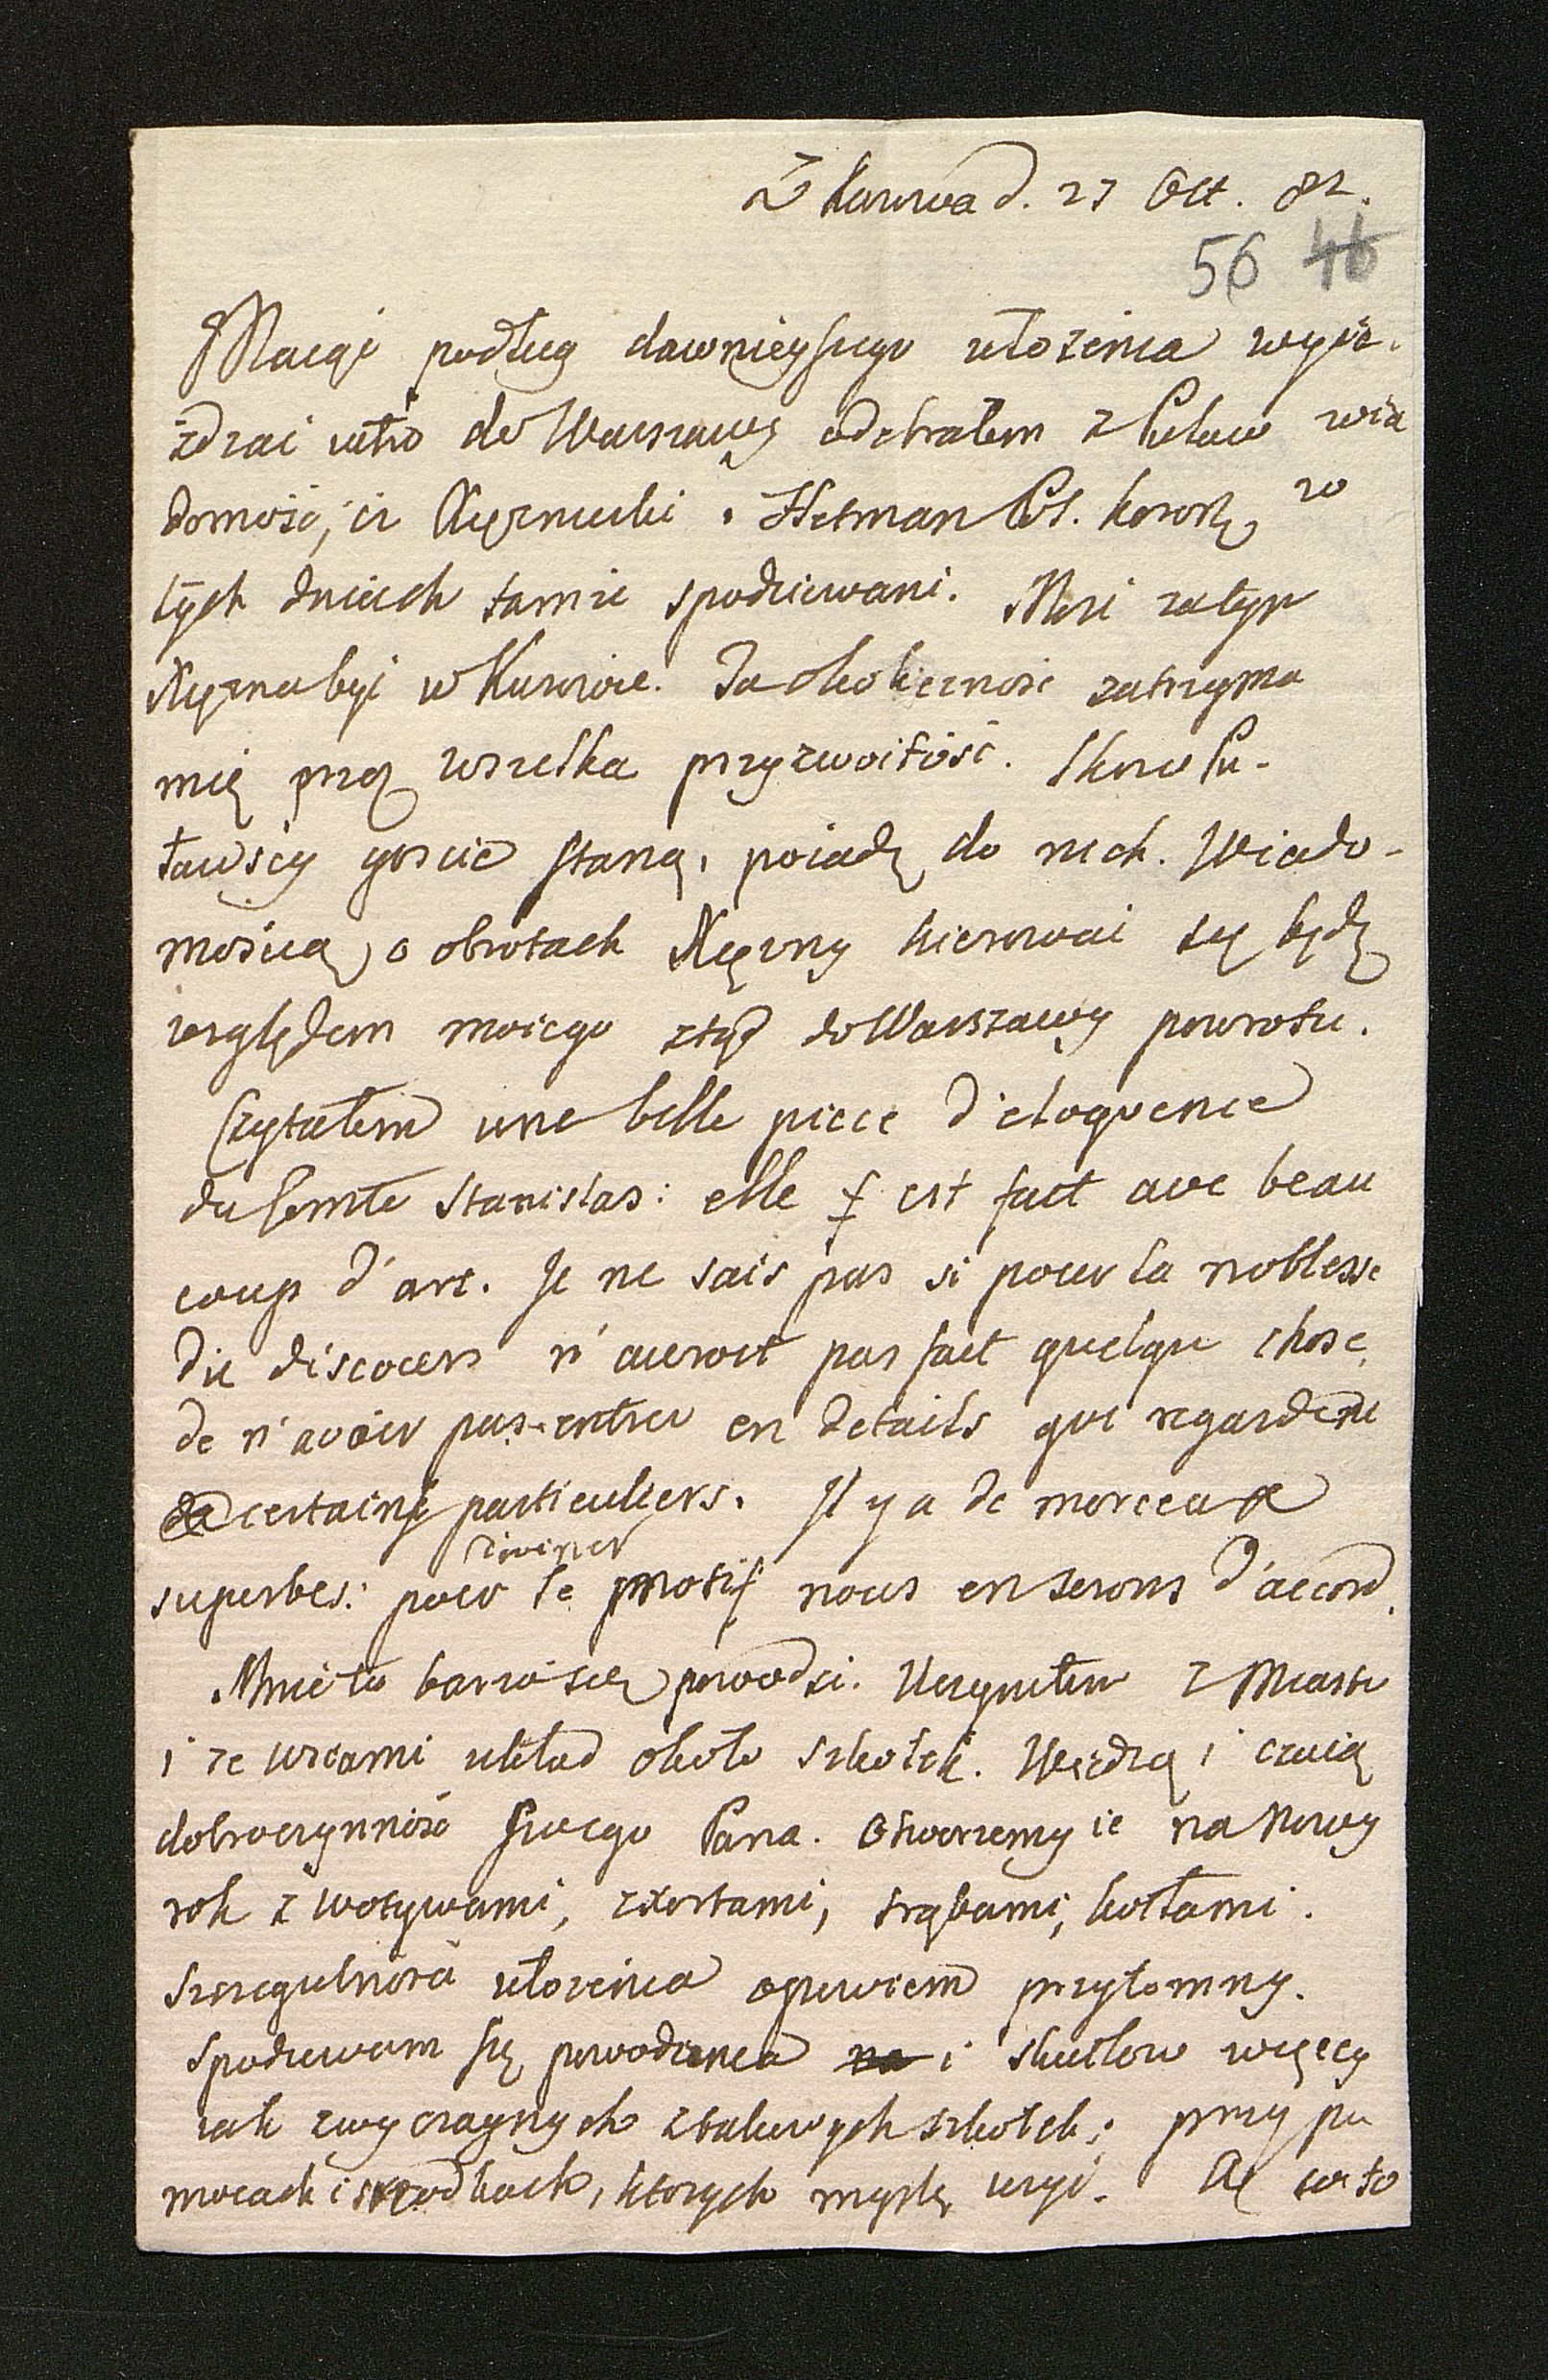 Z Kurowa d. 27 Oct. 82.
56 46
Maiąc podług dawnieyszego ułożenia wyie-
żdzać iutro do Warszawy odebrałem z Puław wia
domość, iż Xiężna i Hetman Pol. Koron. w
tych dniach tamże spodziewani. Musi zatym
Xiężna być w Kurowie. Ta okoliczność zatrzyma
mię przez wszelką przyzwoitość. Skoro Pu-
ławscy goście staną, poiadę do nich. Wiado-
mością o obrotach Xiężny kierować się będę
względem moiego ztąd do Warszawy powrotu.
Czytałem une belle piece d'eloquence
du Comte Stanislas: elle est fait ave beau
coup d'art. Je ne sais pas si pour la noblesse
du discours n'auroit pas fait quelque chose
de n'avoir pas entrer en details qui regardent
certains particuliers. Il y a de morceaux
superbes: pour le motif nous en serons d'accord.
Mnie tu barzo się powodzi. Uczyniłem z Miaste
i ze wsiami układ około szkołek. Wiedzą i czuią
dobroczynność swego Pana. Otworzemy ie na Nowy
rok z wotywami, trąbami, kotłami.
Szczegulności ułożenia opowiem przytomny.
Spodziewam się powodzenia na i skutków więcey
iak zwyczaynych z takowych szkołek; przy po
mocach i srzodkach, których myślę użyć. Ale co to